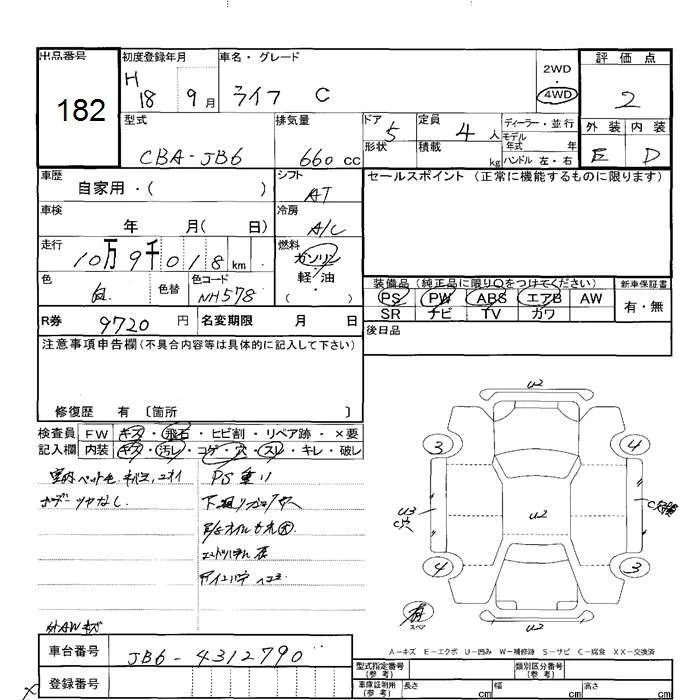 出品番号 初度登録年月 車名・グレード 2WD・4WD 評価点
182 H 18 9月 ライフ C 2
型式 排気量 ドア 定員 ディーラー・並行 外装 内装
CBA-JB6 660 cc 5 4人 モデル年式 年 E D
形状 積載 kg ハンドル 左・右
車歴 自家用・( ) シフト AT セールスポイント (正常に機能するものに限ります)
車検 年 月( 日) 冷房 A/C
走行 10万9千018km 燃料 ガソリン
軽・油
( ・ )
色 白 色替 色コード NH578
装備品 (純正品に限り○をつけてください) 新車保証書
PS PW ABS エアB AW 有・無
SR ナビ TV カワ
R券 9720円 名変期限 月 日 後日品
注意事項申告欄(不具合内容等は具体的に記入して下さい)
修復歴 有 〔箇所 〕
検査員 FW キズ・飛石・ヒビ割・リペア跡・×要
記入欄 内装 キズ・汚レ・コゲ・穴・スレ・キレ・破レ
室内ペット毛
PS重リ
ボデーツヤなし
外AWキズ
U2
3 4
U3 U2
C穴
4 3
有
スペア
U2
A-キズ E-エクボ U-凹み W-補修跡 S-サビ C-腐食 XX-交換済
車台番号 JB6-4312790
登録番号
型式指定番号(参考) 類別区分番号(参考)
車庫証明用(参考) 長さ cm 幅 cm 高さ cm